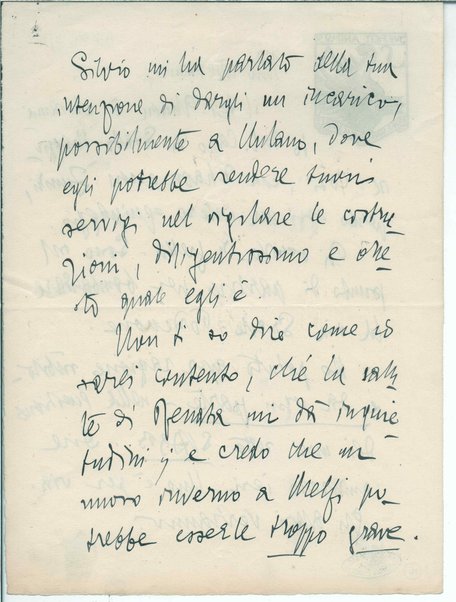 Silvio mi ha parlato della tua
intenzione di dargli un incarico,
possibilmente a Milano, dove
egli potrebbe rendere buoni
servigi nel vigilare le costru-
zioni, diligentissimo e one-
sto quale egli è.
Non ti so dire come io
sarei contento, ché la salu-
te di Renata mi dà inquie-
tudini, e credo che un
nuovo inverno a Melfi po-
trebbe esserle troppo grave.